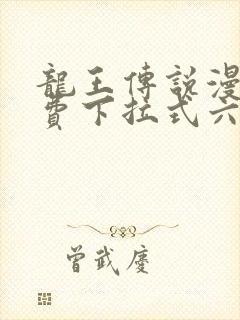 龍王傳說漫
費下拉式六
曾武慶